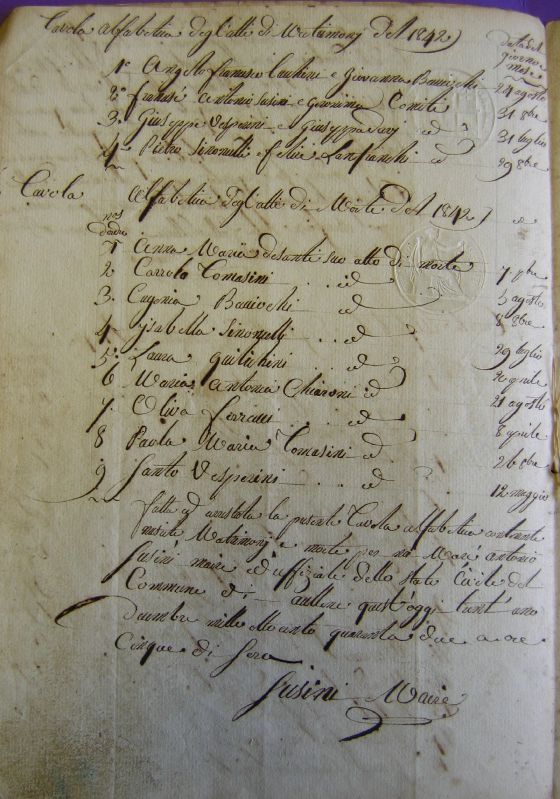 Tavola alfabetica degl'atti di Matrimonj del 1842
data del giorno e mese
1º Angelo Francesco e Giovanna 24 agosto
2º Francesé Antonio Susini e Geronima Comiti 31 8bre
3º Giuseppe Vesperini e Giuseppa id 31 luglio
4º Pietro Simonelli e Felice Lanfranchi id 29 8bre
Tavola alfabetica degl'atti di Morte del 1842 id
nos d'ordre
1 Anna Maria desanti suo atto di morte 7. 8bre
2 Carrolo Tomasini .. id 5 agosto
3. Eugenia .. id 8 8bre
4. Isabella Simonelli .. id 29 luglio
5. Laura Quilichini .. id 20 aprile
6 Maria Antonia Chiaroni id 21 agosto
7. Oliva Ferracci .. id 8 aprile
8 Paola Maria Tomasini id 26 8bre
9 Santo Vesperini .. id 12 maggio
fatta ed arrestata la presente Tavola alfabetica contenente
nascite Matrimonj e morte per noi Marc' antonio
Susini maire ed uffiziale dello stato Civile del
Commune di aullene quest'oggi trent'uno
decembre mille otto cento quaranta due a ore
Cinque di Sera
Susini Maire